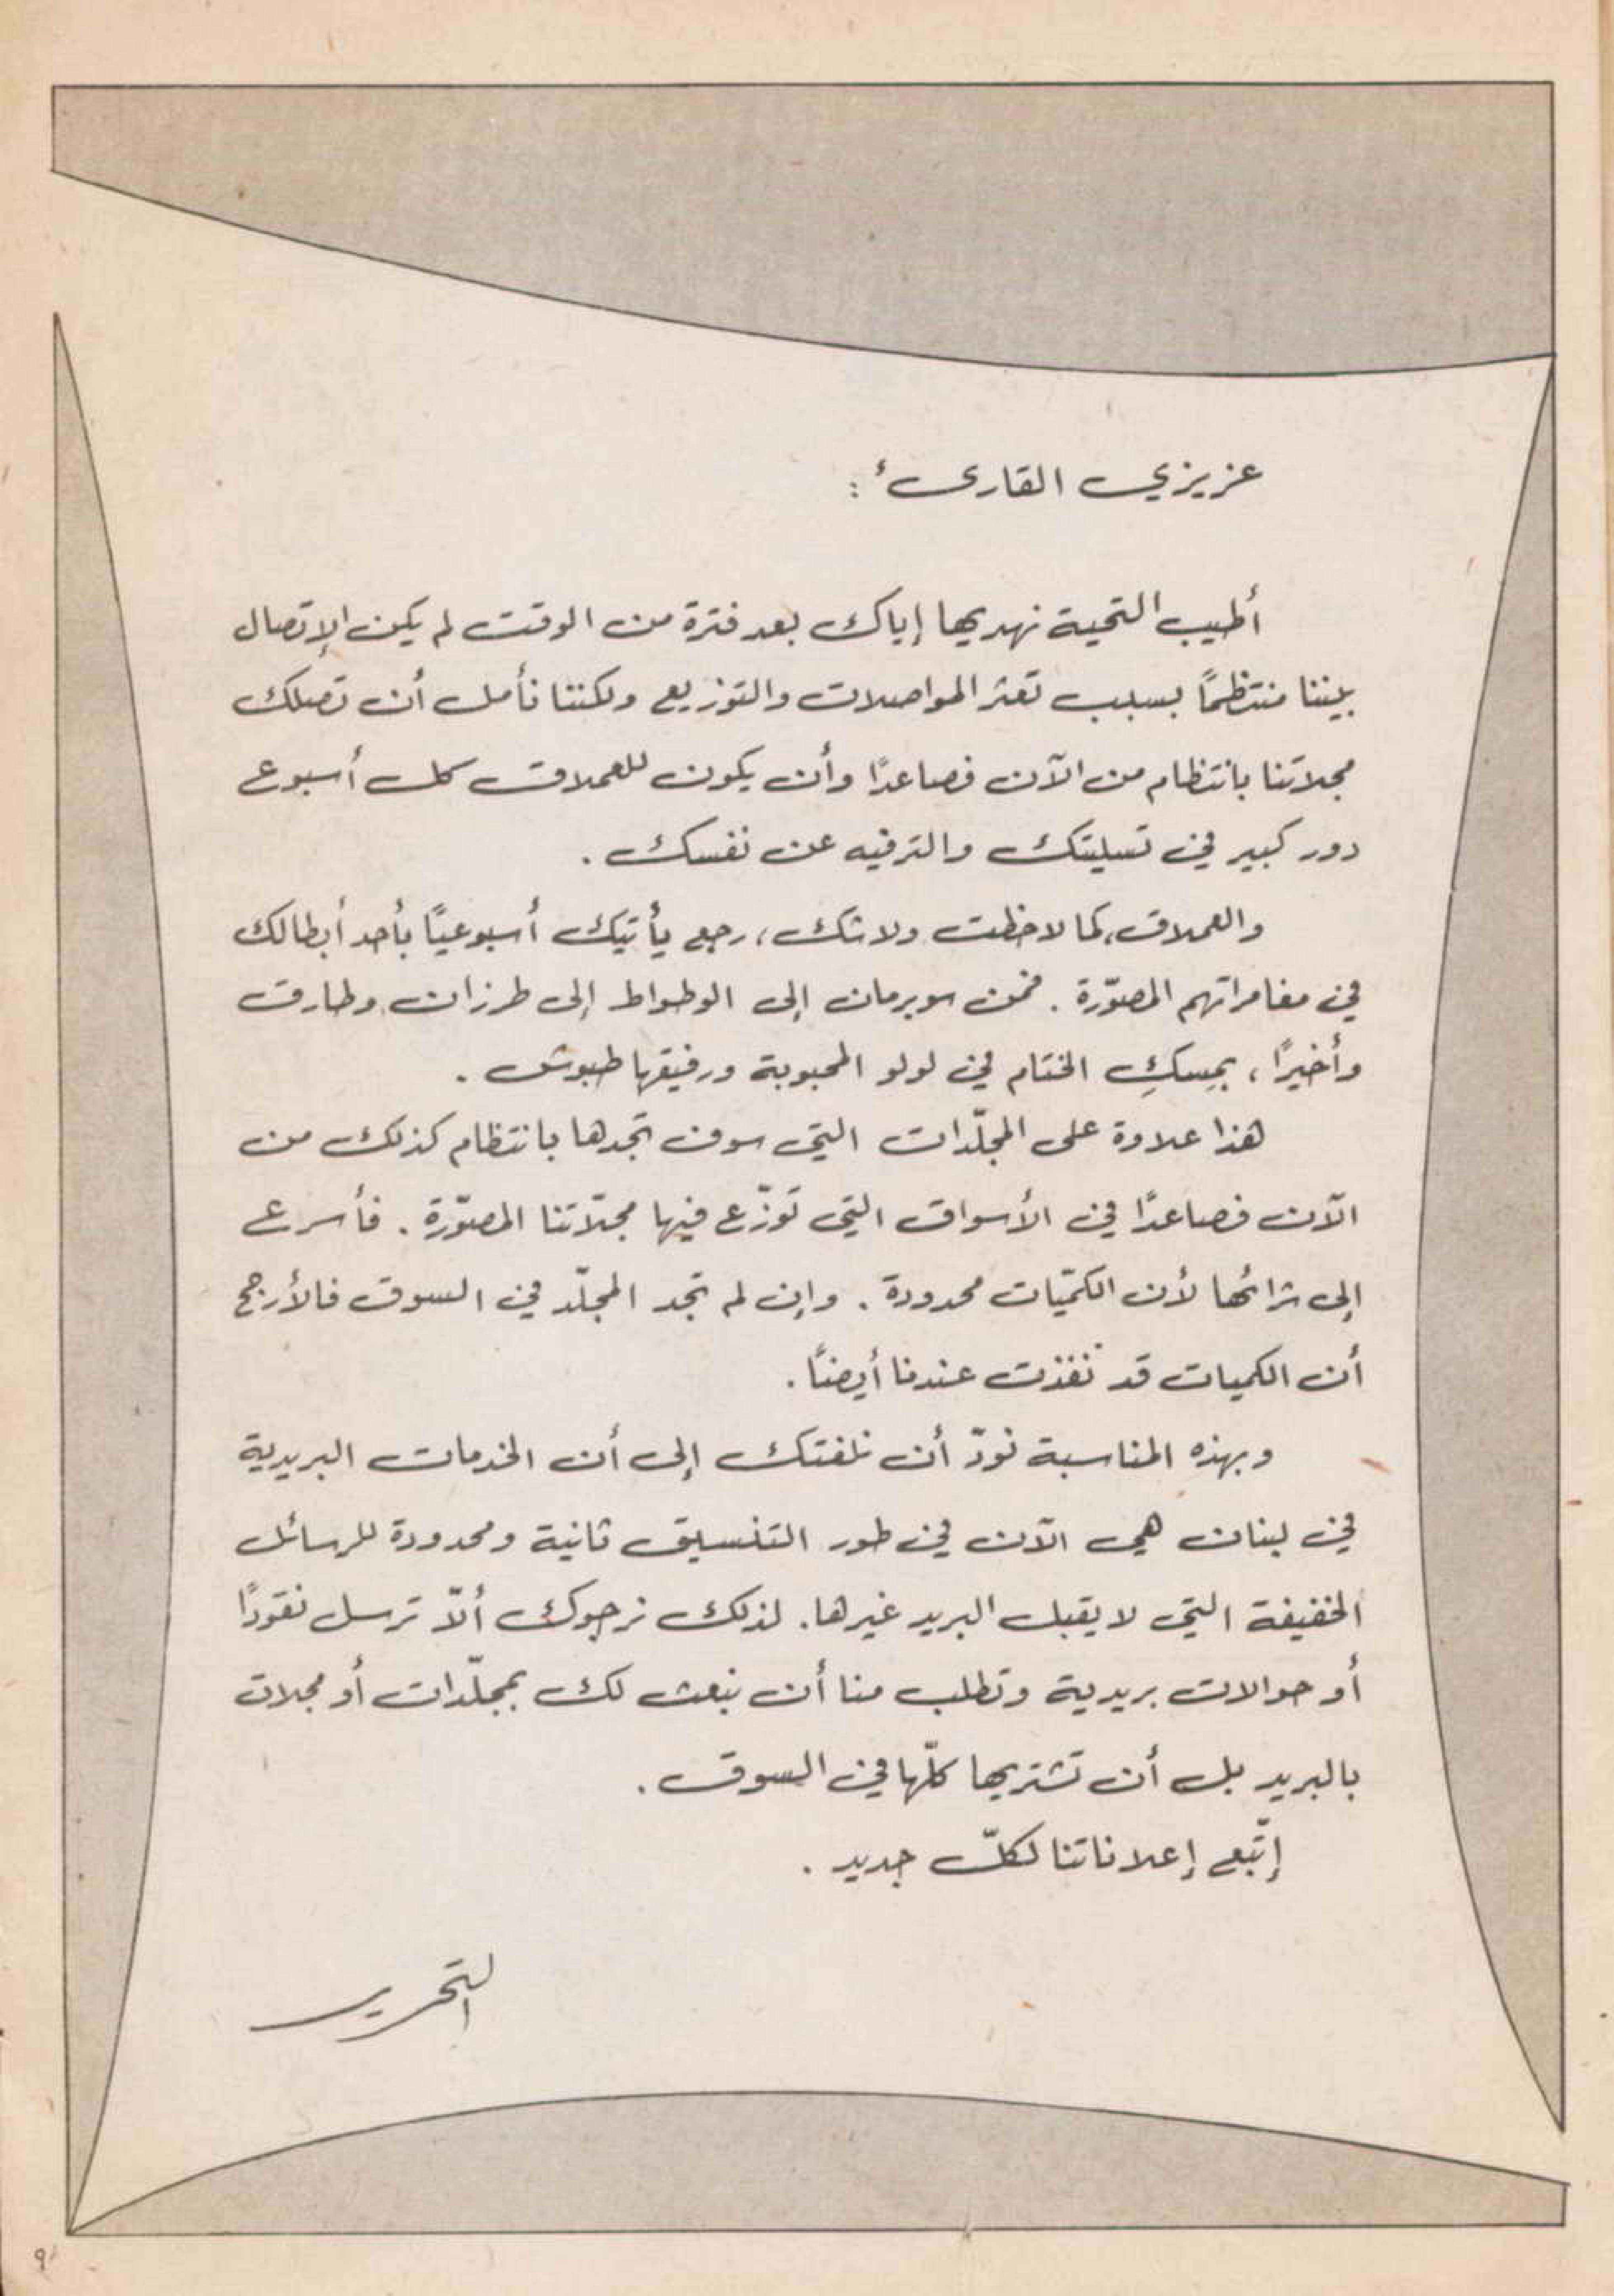 عزيزي القارئ :
أطيب التحية نهديها إياك بعد فترة من الوقت لم يكن الإتصال
بيننا منتظمًا بسبب تعثر المواصلات والتوزيع ولكننا نأمل أن تصلك
مجلاتنا بانتظام من الآن فصاعدًا وأن يكون للعملاق كل أسبوع
دور كبير في تسليتك والترفيه عن نفسك .
والعملاق، كما لاحظت ولا شك، رجع يأتيك أسبوعيًا بأحد أبطالك
في مغامراتهم المصوّرة . فمن سوبرمان إلى الوطواط إلى طرزان وطارق
وأخيرًا ، بمِسكِ الختام في لولو المحبوبة ورفيقها طبوش .
هذا علاوة على المجلّدات التي سوف تجدها بانتظام كذلك من
الآن فصاعدًا في الأسواق التي توزّع فيها مجلّاتنا المصوّرة . فأسرع
إلى شرائها لأن الكميّات محدودة . وإن لم تجد المجلّد في السوق فالأرجح
أن الكميات قد نفذت عندنا أيضًا .
وبهذه المناسبة نودّ أن نلفتك إلى أن الخدمات البريدية
في لبنان هي الآن في طور التنسيق ثانية ومحدودة للرسائل
الخفيفة التي لا يقبل البريد غيرها . لذلك نرجوك ألاّ ترسل نقودًا
أو حوالات بريدية وتطلب منا أن نبعث لك بمجلّدات أو مجلات
بالبريد بل أن تشتريها كلّها في السوق .
إتّبع إعلاناتنا لكلّ جديد .
التحرير
٩